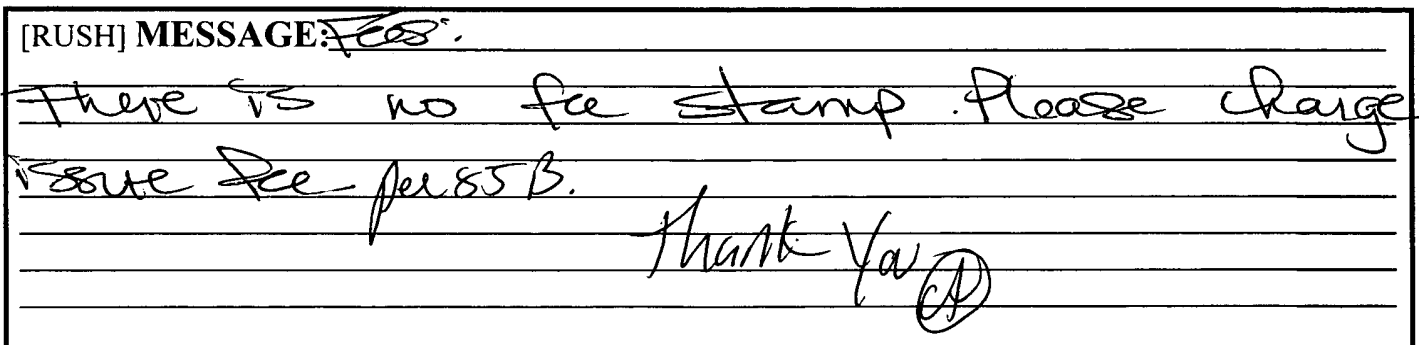 [RUSH] MESSAGE: Fees.
There is no fee stamp. Please charge
issue fee per 85 B.
Thank You